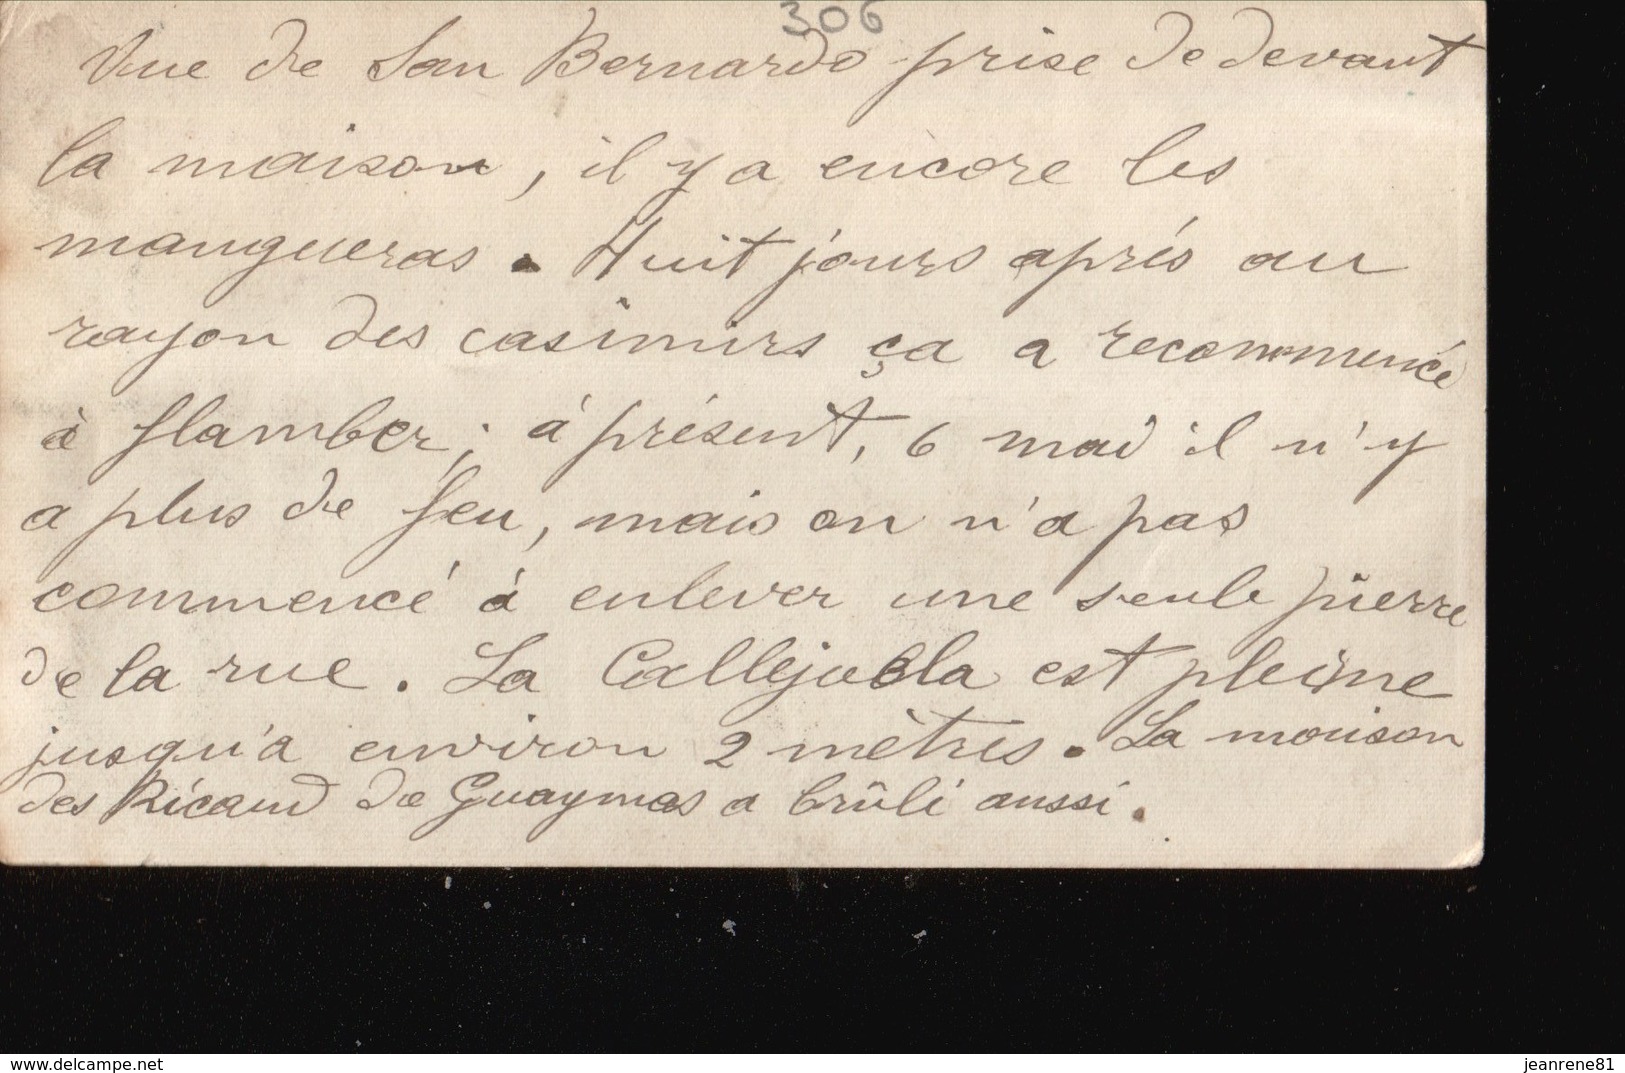 306
Vue de San Bernardo prise de devant
la maison, il y a encore les
mangueras. Huit jours après au
rayon des casimirs ça a recommencé
à flamber; à présent, 6 mai il n'y
a plus de feu, mais on n'a pas
commencé à enlever une seule pierre
de la rue. La Callejuela est pleine
jusqu'à environ 2 mètres. La maison
des Ricaud de Guaymas a brûlé aussi.
© www.delcampe.net
jeanrene81